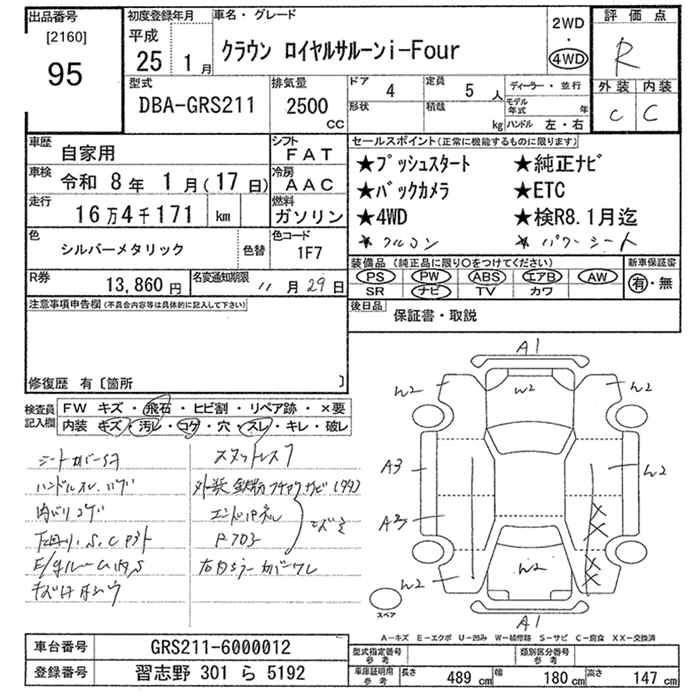 出品番号
[2160]
95
初度登録年月
平成
25 1月
車名・グレード
クラウン ロイヤルサルーンi-Four
2WD
・
4WD
評価点
R
外装 内装
C C
型式
DBA-GRS211
排気量
2500
CC
ドア 4
定員 5人
形状
積載 kg
ディーラー・並行
モデル年式 年
ハンドル 左・右
車歴 自家用
シフト FAT
車検 令和 8年 1月(17日)
冷房 AAC
走行 16万4千171 km
燃料 ガソリン
色 シルバーメタリック
色替
色コード 1F7
R券 13,860円
名変通知期限 11月29日
セールスポイント(正常に機能するものに限ります)
★プッシュスタート ★純正ナビ
★バックカメラ ★ETC
★4WD ★検R8.1月迄
★フルコン ★パワーシート
装備品(純正品に限り○をつけてください)
新車保証書
PS PW ABS エアB AW
有・無
SR ナビ TV カワ
後日品 保証書・取説
注意事項申告欄(不具合内容等は具体的に記入して下さい)
修復歴 有〔箇所 〕
検査員記入欄
FW キズ・飛石・ヒビ割・リペア跡・×要
内装 キズ・汚レ・コゲ・穴・スレ・キレ・破レ
スタットレス
ハンドルスレ
内バリコゲ
下回り.S.C
エンドパネル
キズ
A1
W2 W2 W2
A3 W2
A3
W2 W2
A1
スペア
A-キズ E-エクボ U-凹み W-補修跡 S-サビ C-腐食 XX-交換済
車台番号 GRS211-6000012
登録番号 習志野 301 ら 5192
型式指定番号 参考
類別区分番号 参考
車庫証明用 参考
長さ 489cm 幅 180cm 高さ 147cm